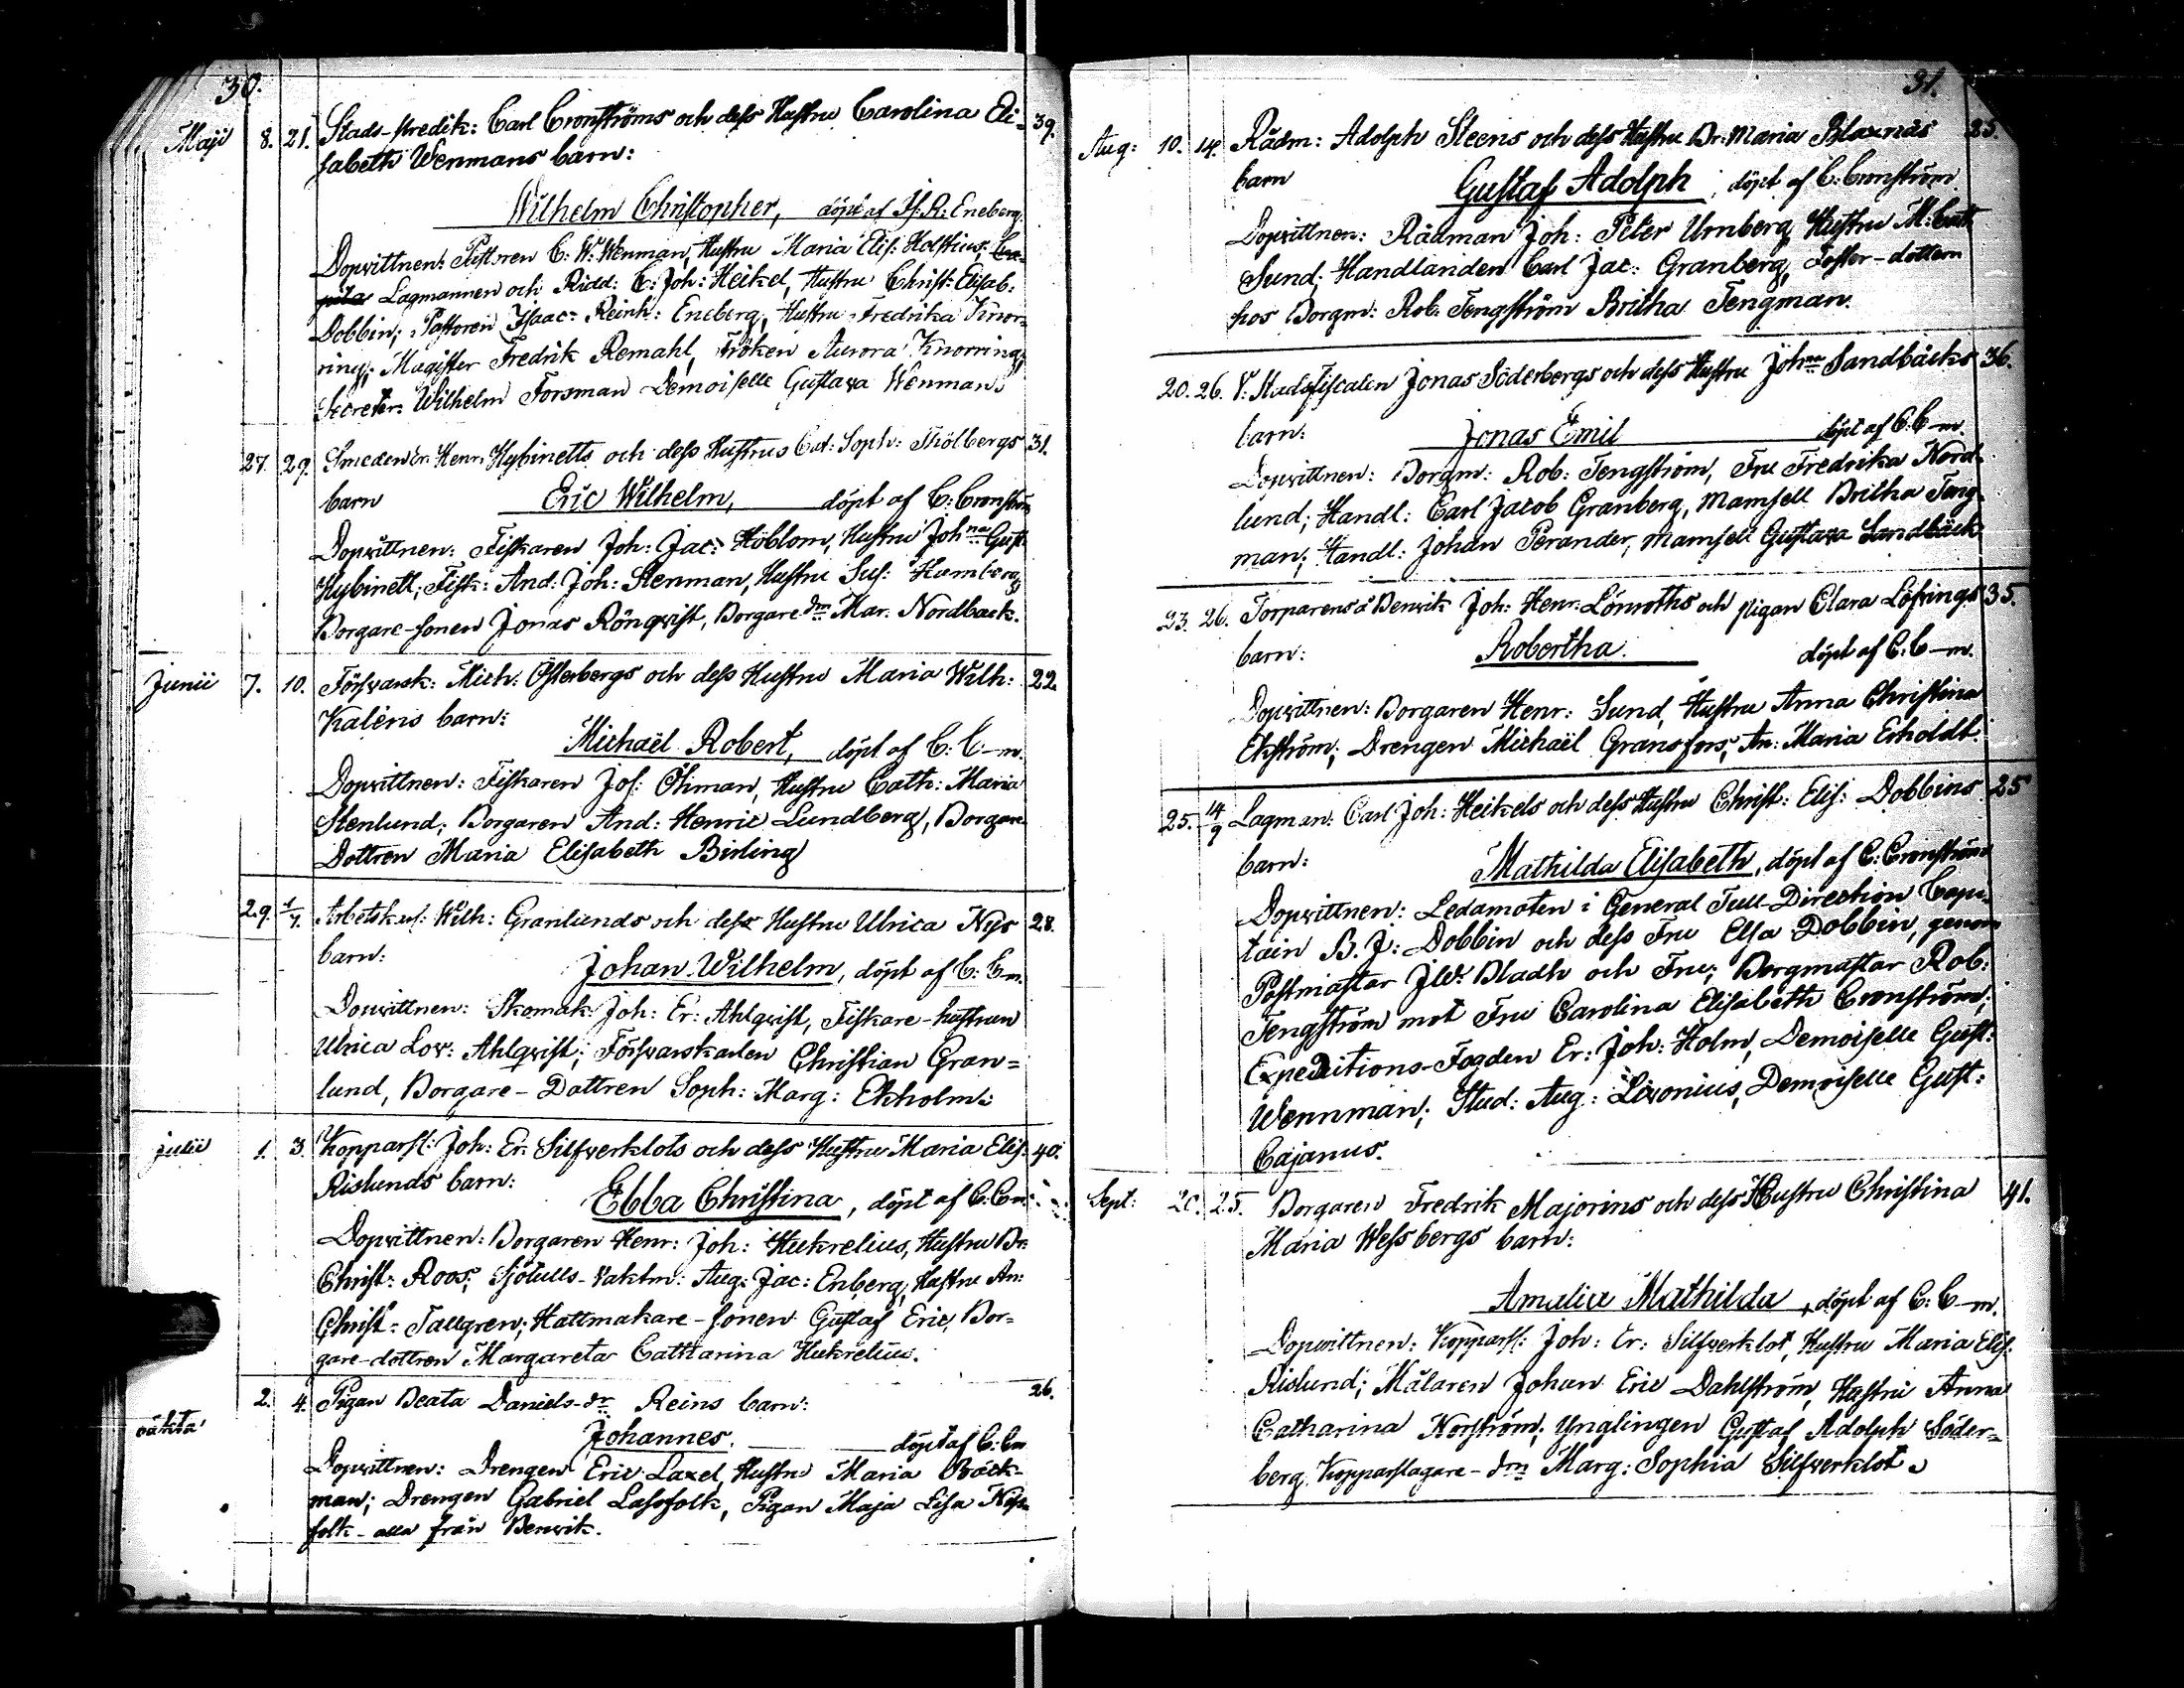 30.
Maji 8. 21. Stads-predik: Carl Cronströms och dess Hustru Carolina Eli- 39.
sabeth Wenmans barn:
Wilhelm Christopher, döpt af Is. R. Eneberg.
Dopvittnen: C. W. Wenman, Hustru Maria Elis: Holstius;
Lagmannen och Ridd: C: Joh: Heikel, Hustru Christ: Elisab:
Dobbin; Pastoren Isaac Reinh: Eneberg, Hustru Fredrika Knor-
ring; Magister Fredrik Remahl, Fröken Aurora Knorring;
Secreter: Wilhelm Forsman Demoiselle Gustava Wenman.
27. 29. Smeden Henr. Hybinetts och dess Hustrus Cat: Soph: Thölbergs 31.
barn Eric Wilhelm, döpt af C: Cronström
Dopvittnen: Fiskaren Joh: Jac: Höblom, Hustru Johna Gust:
Hybinett; Fisk: And: Joh: Stenman, Hustru Sus: Hamberg;
Borgare-sonen Jonas Rönqvist, Borgare drn Mar. Nordback.
Junii 7. 10. Försvarsk: Mich: Österbergs och dess Hustru Maria Wilh: 22.
Kaléns barn:
Michaël Robert, döpt af C: C-m.
Dopvittnen: Fiskaren Jos: Öhman, Hustru Cath: Maria
Stenlund; Borgaren And: Henric Lundberg, Borgare
Dottren Maria Elisabeth Birling
29. 1/7. Arbetsk: Wilh: Granlunds och dess Hustru Ulrica Nys 28.
barn:
Johan Wilhelm, döpt af C: Cm.
Dopvittnen: Skomak: Joh: Er: Ahlqvist, Fiskare-hustrun
Ulrica Lov: Ahlqvist; Försvarskarlen Christian Gran=
lund, Borgare-Dottren Soph: Marg: Ekholm.
julii 1. 3. Kopparsl: Joh: Er: Silfverklots och dess Hustru Maria Elis: 40.
Rislunds barn:
Ebba Christina, döpt af C. Cm:
Dopvittnen: Borgaren Henr: Joh: Hukrelius, Hustru Br:
Christ: Roos; Sjötulls-Vaktm: Aug: Jac: Enberg, Hustru An:
Christ: Tallgren; Hattmakare-sonen Gustaf Eric, Bor=
gare-dottren Margareta Catharina Hukrelius.
2. 4. Pigan Beata Daniels-dr Reins barn: 26.
oäkta
Johannes. döpt af C: Cm
Dopvittnen: Drengen Eric Laxel, Hustru Maria Bäck-
man; Drengen Gabriel Lassfolk, Pigan Maja Lisa
folk - alla från Benvik.
31.
Aug: 10. 14. Rådm: Adolph Steens och dess Hustru Br: Maria Blaxnäs 25.
barn Gustaf Adolph, döpt af C: Cronström.
Dopvittnen: Rådman Joh: Peter Urnberg, Hustru M: Cath
Sund; Handlanden Carl Jac: Granberg, Foster-dottern
hos Borgm: Rob. Tengström Britha Tengman.
20. 26. V. Stadsfiscalen Jonas Söderbergs och dess Hustru Johna Sandbäcks 36.
barn: Jonas Emil döpt af C. C-m.
Dopvittnen: Borgm: Rob: Tengström, Fru Fredrika Nord-
lund; Handl: Carl Jacob Granberg, Mamsell Britha Teng-
man; Handl: Johan Perander, Mamsell Gustava Sandbäck
23. 26. Torparens å Benvik Joh: Henr: Lönroths och pigan Clara Löfvings 35.
barn: Robertha. döpt af C. C-m.
Dopvittnen: Borgaren Henr: Sund, Hustru Anna Christina
Ekström; Drengen Michaël Gransfors, An: Maria Erholdt.
25. 14/9 Lagman: Carl Joh: Heikels och dess Hustru Christ: Elis: Dobbins 25
barn:
Mathilda Elisabeth, döpt af C: Cronström
Dopvittnen: Ledamoten i General Tull-Direction Capi-
tain B. J: Dobbin och dess Fru Elsa Dobbin, genom
Postmästar J.W. Bladh och Fru; Borgmästar Rob:
Tengström mot Fru Carolina Elisabeth Cronström;
Expeditions-Fogden Er: Joh: Holm, Demoiselle Gust:
Wennman; Stud: Aug: Livonius, Demoiselle Gust:
Cajanus.
Sept: 20. 25. Borgaren Fredrik Majorins och dess Hustru Christina 41.
Maria Wessbergs barn:
Amalia Mathilda, döpt af C: C-m.
Dopvittnen: Kopparsl: Joh: Er: Silfverklot, Hustru Maria Elis.
Rislund; Målaren Johan Eric Dahlström, Hustru Anna
Catharina Norström; Ynglingen Gustaf Adolph Söder=
berg, Kopparslagare-drn Marg: Sophia Silfverklot